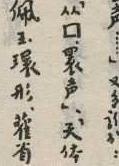 声……”又多
“从口，睘声”、天体
佩玉環形，雚省